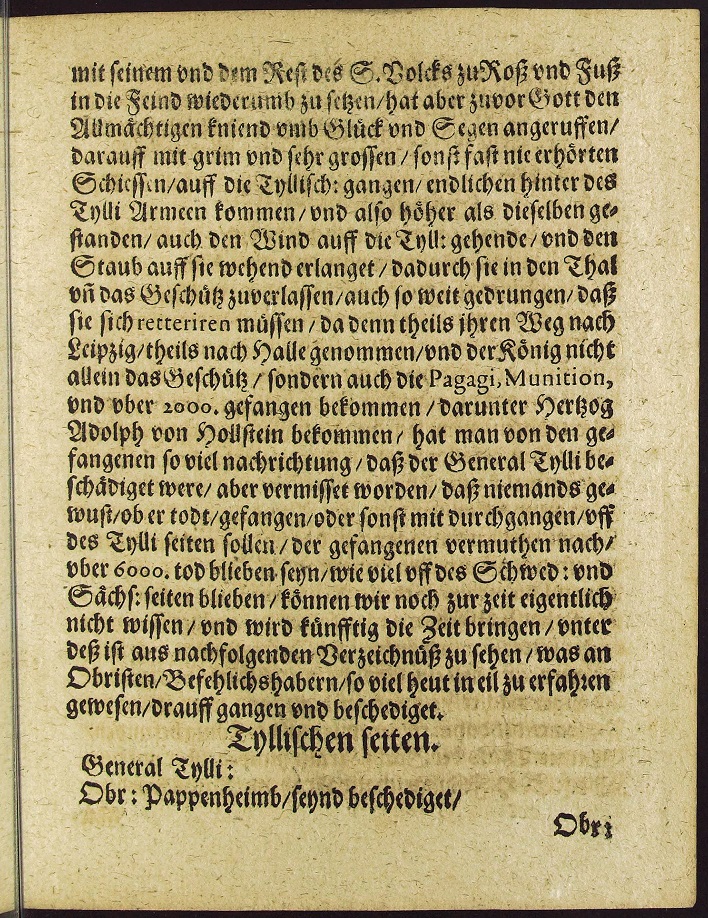 mit seinem vnd dem Rest des S. Volcks zu Roß vnd Fuß
in die Feind wiederumb zu setzen/ hat aber zuvor Gott den
Allmächtigen kniend vmb Glück vnd Segen angeruffen/
darauff mit grim vnd sehr grossen/ sonst fast nie erhörten
Schiessen/ auff die Tyllisch: gangen/ endlichen hinter des
Tylli Armeen kommen/ vnd also höher als dieselben ge⸗
standen/ auch den Wind auff die Tyll: gehende/ vnd den
Staub auff sie wehend erlanget/ dadurch sie in den Thal
vñ das Geschütz zuverlassen/ auch so weit gedrungen/ daß
sie sich retteriren müssen/ da denn theils jhren Weg nach
Leipzig/ theils nach Halle genommen/ vnd der König nicht
allein das Geschütz/ sondern auch die Pagagi, Munition,
vnd vber 2000. gefangen bekommen/ darunter Hertzog
Adolph von Hollstein bekommen/ hat man von den ge⸗
fangenen so viel nachrichtung/ daß der General Tylli be⸗
schädiget were/ aber vermisset worden/ daß niemands ge⸗
wust/ ob er todt/ gefangen/ oder sonst mit durchgangen/ vff
des Tylli seiten sollen/ der gefangenen vermuthen nach/
vber 6000. tod blieben seyn/ wie viel vff des Schwed: vnd
Sächs: seiten blieben/ können wir noch zur zeit eigentlich
nicht wissen/ vnd wird künfftig die Zeit bringen/ vnter
deß ist aus nachfolgenden Verzeichnüß zu sehen/ was an
Obristen/ Befehlichshabern/ so viel heut in eil zu erfahren
gewesen/ drauff gangen vnd beschediget.
Tyllischen seiten.
General Tylli:
Obr: Pappenheimb/ seynd beschediget/
Obr: